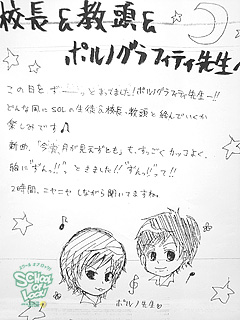 校長&教頭&
ポルノグラフィティ先生!
この日をずーーっとまってました!ポルノグラフィティ先生ー!!
どんな風にSOLの生徒&校長、教頭と絡んでいくか
楽しみです♪
新曲、「今宵、月が見えずとも」も、すっごくカッコよく、
胸に"ずんっ!!"ときました!!"ずんっ!!"って!!
2時間、ニヤニヤしながら聞いてますね。
SCHOOL OF LOCK!
ポルノ先生